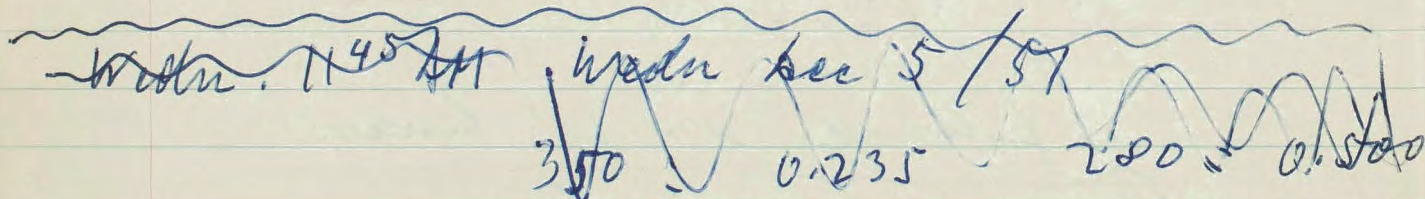 Wedn. 11 45 AM Wedn Dec 5/51
350 0.235 280 0.500